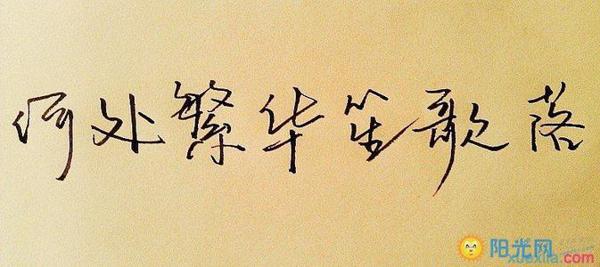 何处繁华笙歌落
阳光网
xuexila.com